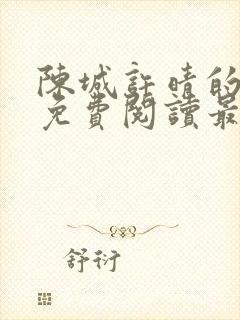 陳城許晴的
免費閱讀最
舒衍